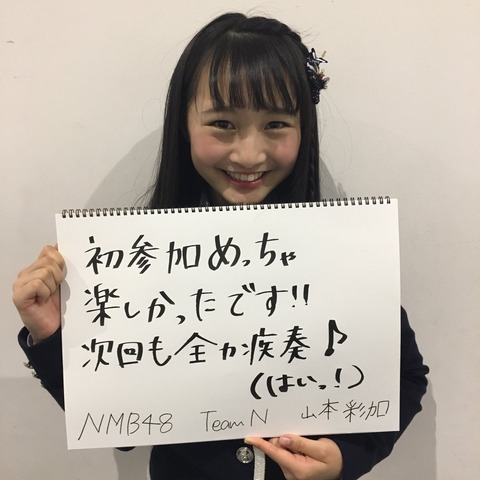 初参加めっちゃ
楽しかったです!!
次回も全力疾奏♪
(はいっ!)
NMB48 Team N 山本彩加